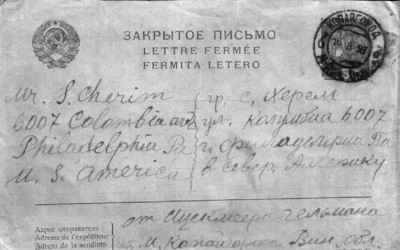 ЗАКРЫТОЕ ПИСЬМО
LETTRE FERMÉE
FERMITA LETERO
Mr. S. Cherim
6007 Colombia av
Philadelphia Pa
U. S. America
гр. С. Херем
ул. Колумбия 6007
г. Филаделфия Па
в север. Америку
Адрес отправителя
Adresse de l'expéditeur
Adreso de la sendinto
от
Гельмана
м. Копайгород Вин. обл.